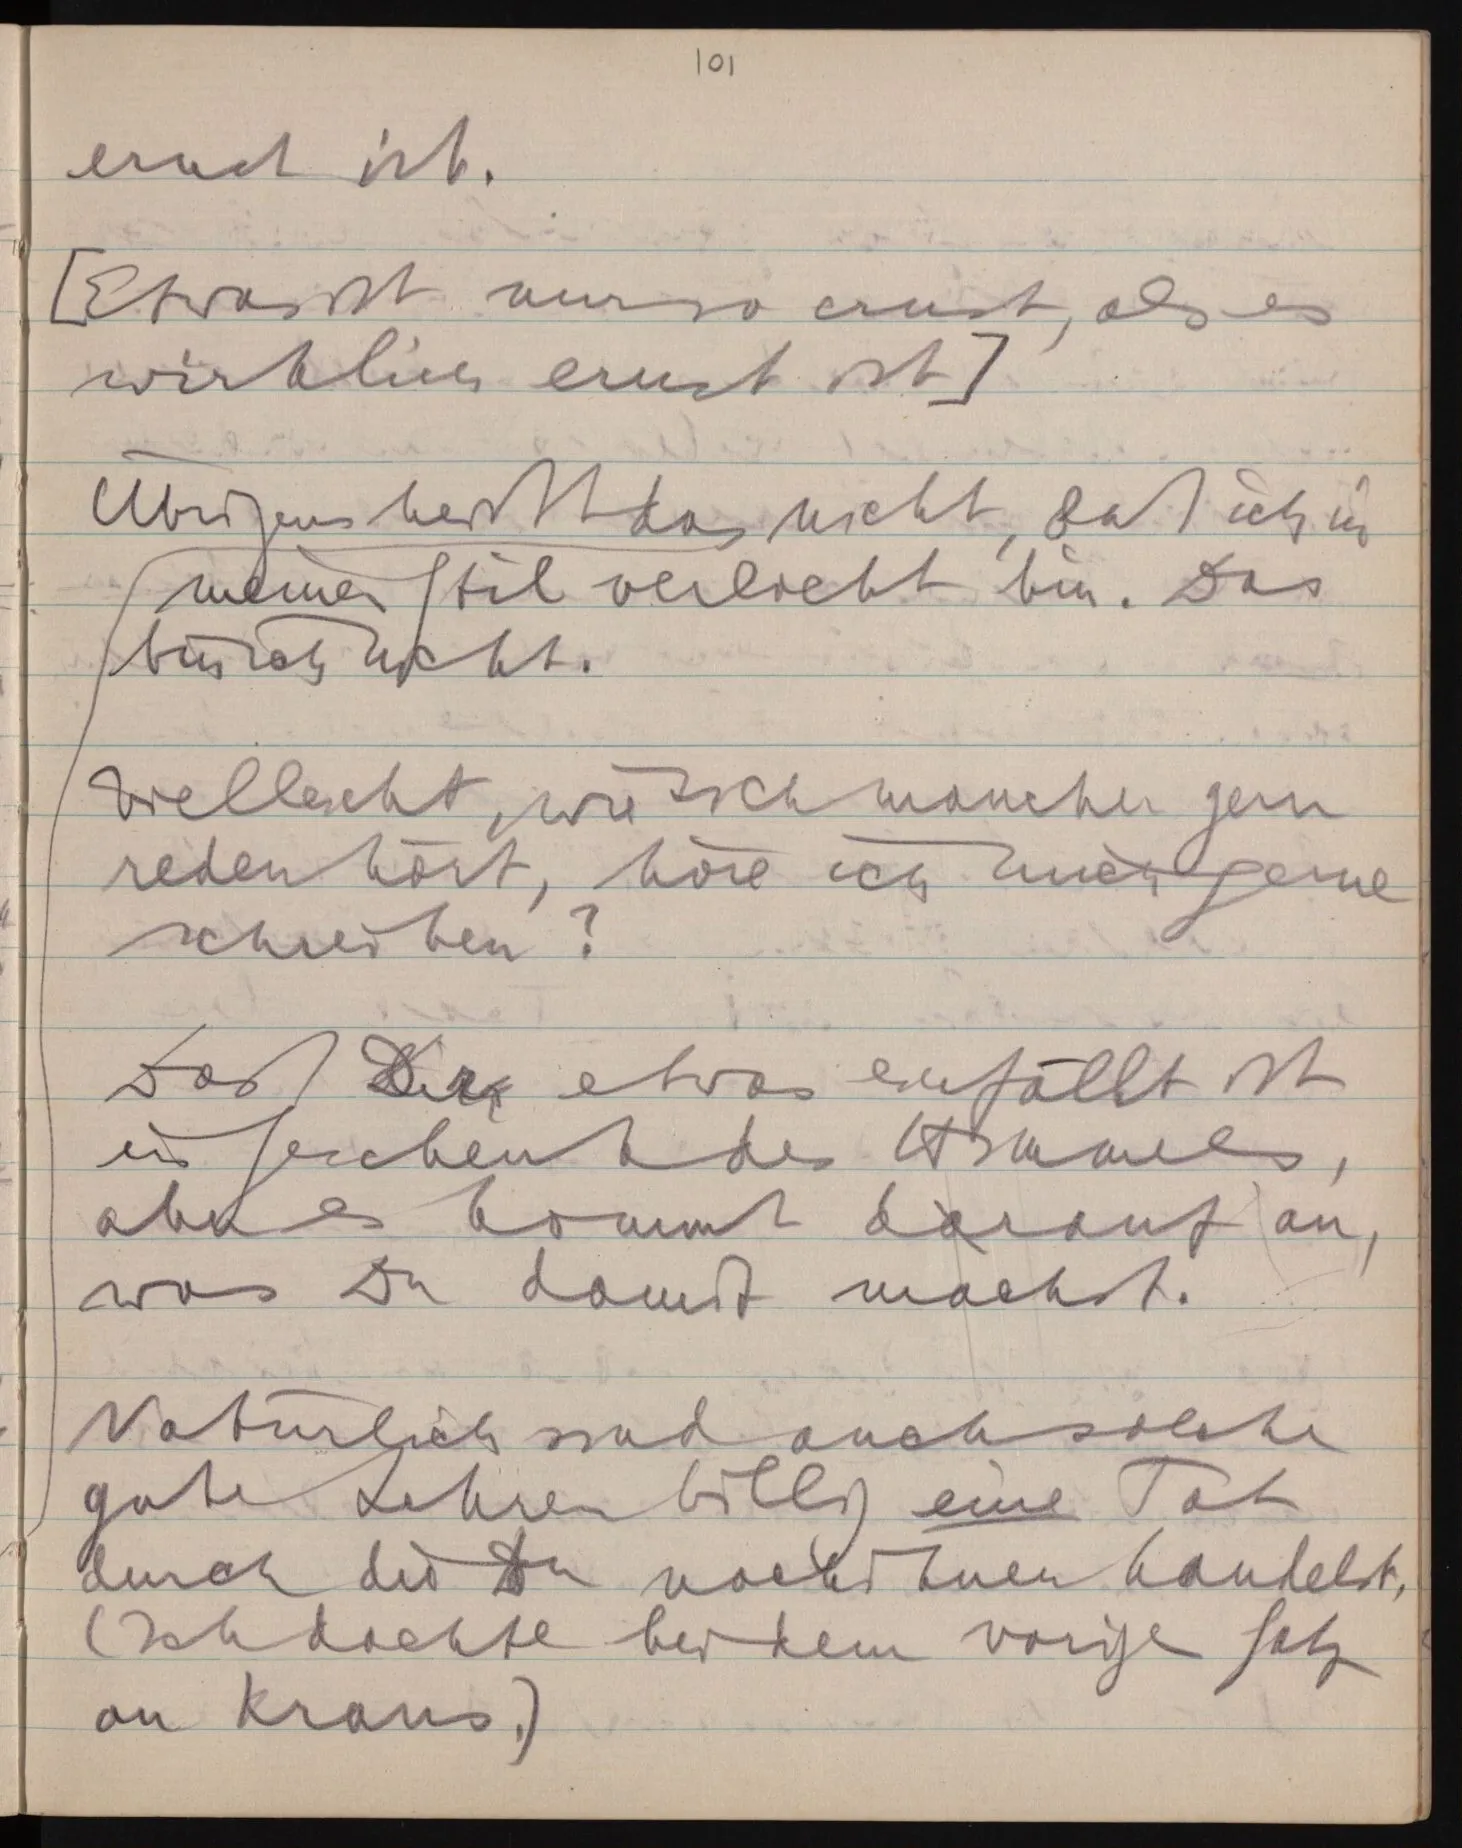 101
ernst ist.
[Etwas ist nur so ernst, als es
wirklich ernst ist]
Übrigens heißt das nicht, daß ich in
meinen Stil verliebt bin. Das
bin ich nicht.
Vielleicht, wie sich mancher gern
reden hört, höre ich mich gerne
schreiben?
Daß Dir etwas einfällt ist
ein Geschenk des Himmels,
aber es kommt darauf an,
was Du damit machst.
Natürlich sind auch solche
gute Lehren billig eine Tat
durch die Du nach ihnen handelst.
(Ich dachte bei dem vorige Satz
an Kraus.)